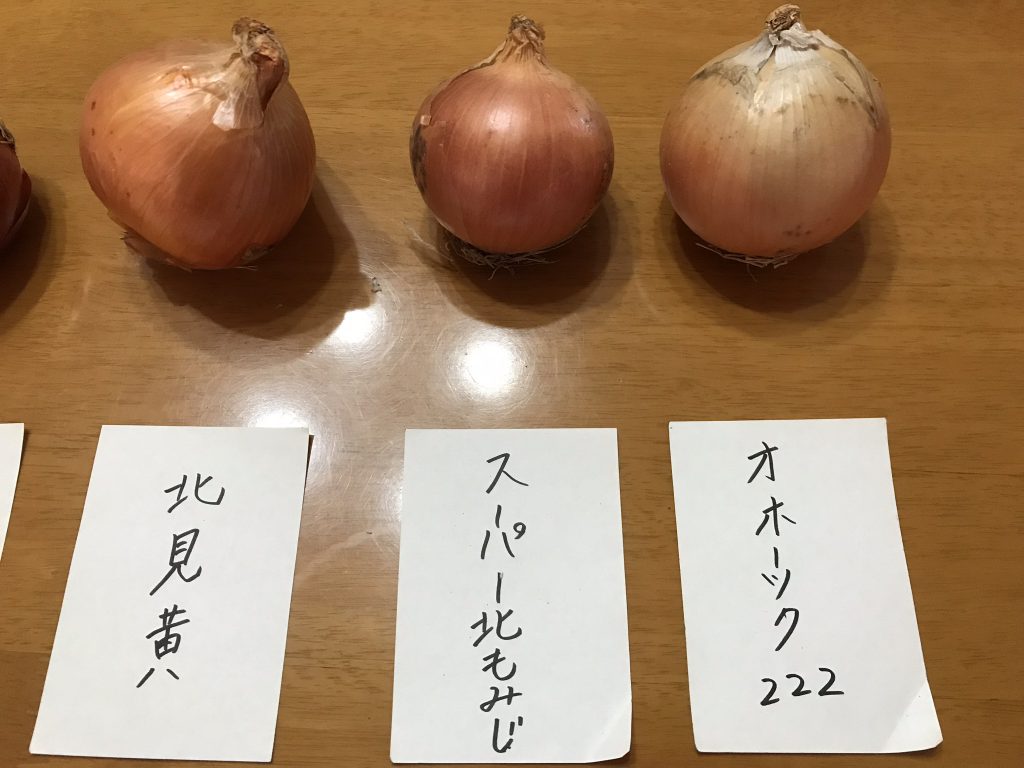 北見黄
スーパー北もみじ
オホーツク222